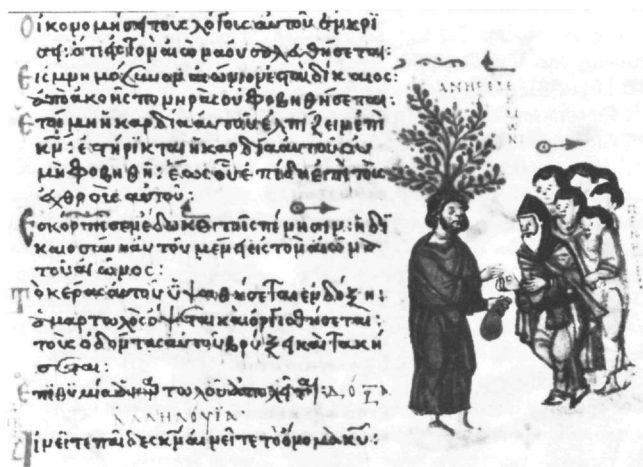 Οἰκονομήσει τοὺς λόγους αὐτοῦ ἐν κρί
σει: ὅτι εἰς τὸν αἰῶνα οὐ σαλευθήσεται:
Εἰς μνημόσυνον αἰώνιον ἔσται δίκαιος:
ἀπὸ ἀκοῆς πονηρᾶς οὐ φοβηθήσεται:
Ἑτοίμη ἡ καρδία αὐτοῦ ἐλπίζειν ἐπὶ
κν: ἐστήρικται ἡ καρδία αὐτοῦ οὐ
μὴ φοβηθῇ: ἕως οὗ ἐπίδῃ ἐπὶ τοὺς
ἐχθροὺς αὐτοῦ:
Ἐσκόρπισεν ἔδωκεν τοῖς πένησιν: ἡ δι
καιοσύνη αὐτοῦ μένει εἰς τὸν αἰῶνα
τοῦ αἰῶνος:
Τὸ κέρας αὐτοῦ ὑψωθήσεται ἐν δόξῃ:
ἁμαρτωλὸς ὄψεται καὶ ὀργισθήσεται:
τοὺς ὀδόντας αὐτοῦ βρύξει καὶ τακή
σεται:
ἐπιθυμία ἁμαρτωλοῦ ἀπολεῖται:
ΑΛΛΗΛΟΥΪΑ
Αἰνεῖτε παῖδες κν αἰνεῖτε τὸ ὄνομα κυ: